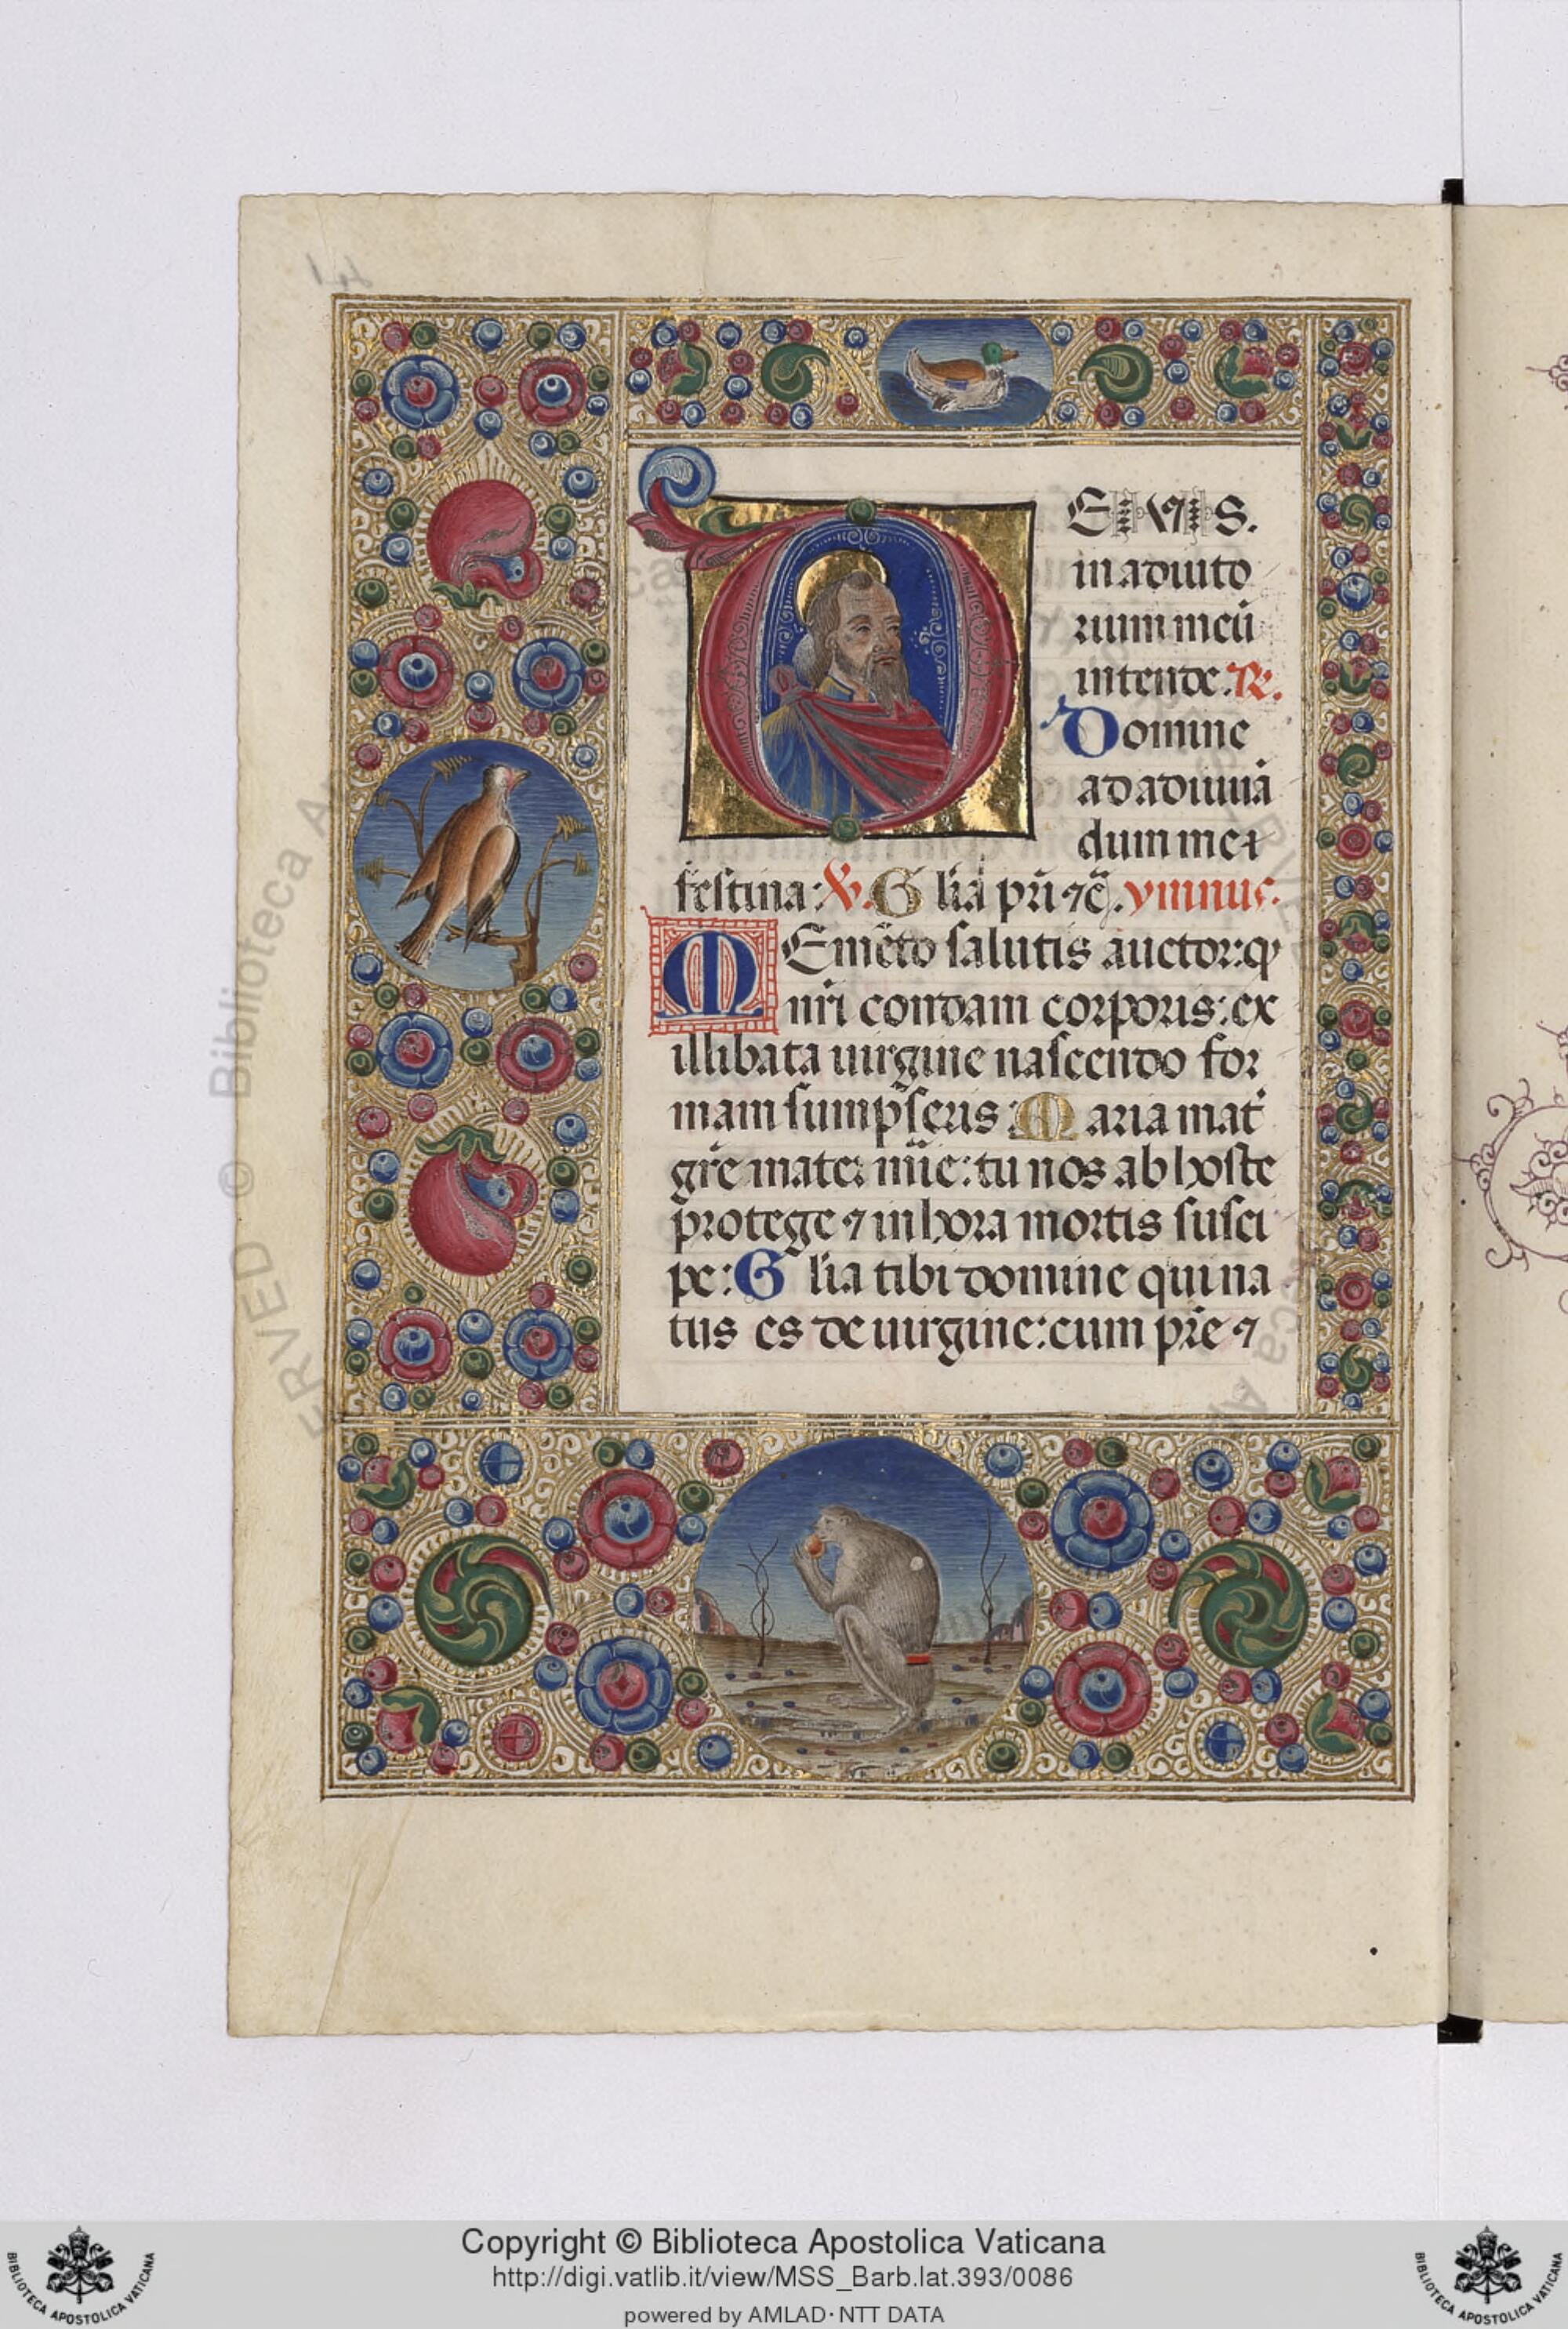 DEUS
in adiuto
rium meũ
intende. R.
Domine
ad adiuuã
dum me ⁊
festina: V. G lia pr̃i ⁊c̃. ymnus.
Mem̃eto salutis auctor: qͥ
nr̃i condam corporis: ex
illibata uirgine nascendo for
mam sumpseris: Maria mat̃
gr̃e mater mĩe: tu nos ab hoste
protege ⁊ in hora mortis susci
pe: G lia tibi domine qui na
tus es de uirgine: cum pr̃e ⁊
Copyright © Biblioteca Apostolica Vaticana
http://digi.vatlib.it/view/MSS_Barb.lat.393/0086
powered by AMLAD · NTT DATA
BIBLIOTECA APOSTOLICA VATICANA
BIBLIOTECA APOSTOLICA VATICANA